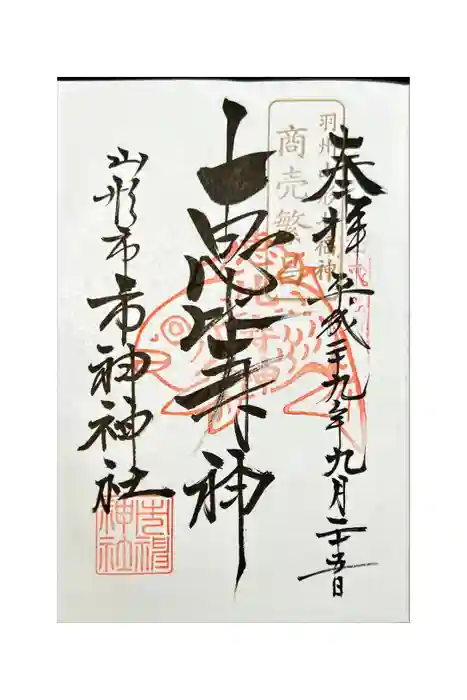 奉拝 平成二十九年九月二十五日
羽州山形七福神
商売繁昌
恵比寿神
山形市 市神神社
市神神社